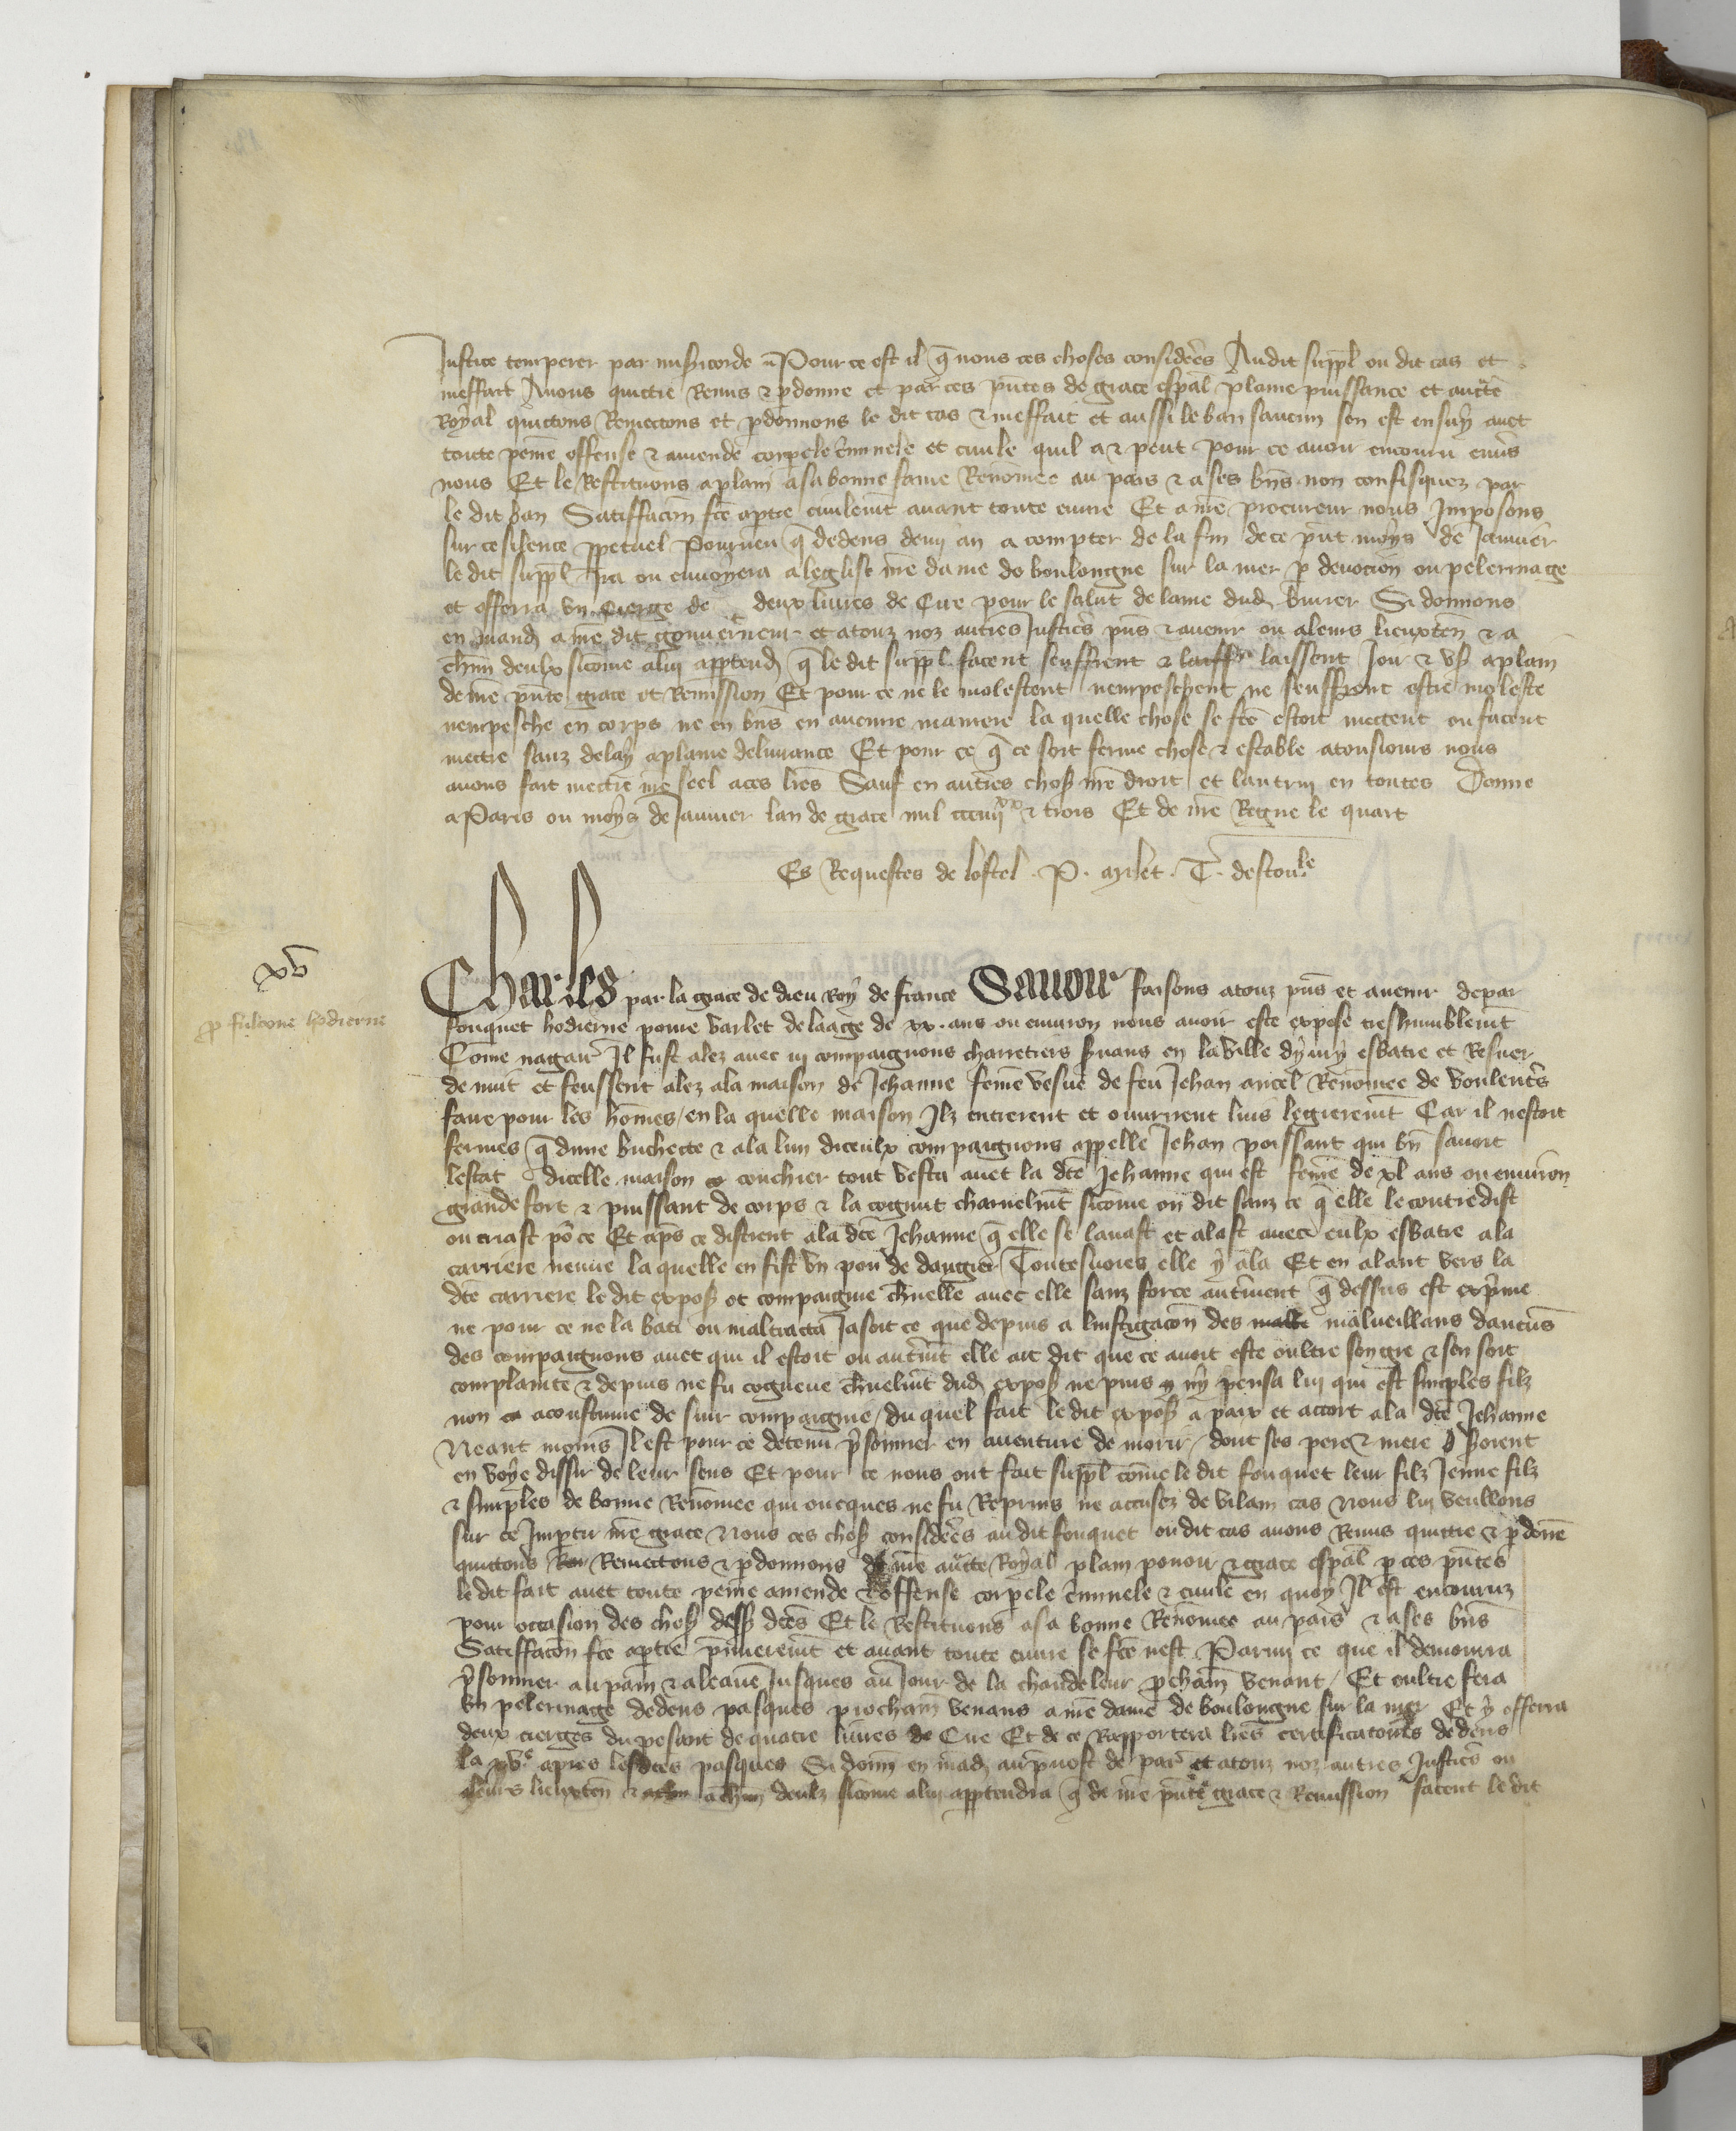 Justice temperer par misericorde Pour ce est il q̃ nous ces choses considerees Audit suppl̃ ou dit cas et
meffait Avons quictie Remis ⁊ ꝑdonne et par ces p̃ntes de grace esp̃al plaine puissance et auct̃e
Royal quictons Remectons et ꝑdonnons le dit cas ⁊ meffait et aussi le ban saucun sen est ensuy avec
toute peine offense ⁊ amende corpele c̃iminele et civile quil a ⁊ peut pour ce avoir encouru env̾s
nous Et le Restituons a plain a sa bonne fame Renom̃ee au pais ⁊ a ses bñs non confisquez par
le dit ban Satisfac̃on fc̃e a ptie civilem̃t avant toute euvre Et a nr̃e procureur nous Imposons
sur ce silence ꝑpetuel Pourveu q̃ dedens demy an a compter de la fin de ce p̃nt moys de Janvier
le dit suppl̃ Ira ou envoyera a leglise nr̃e dame de bouloingne sur la mer ꝑ devocion ou pelerinage
et offerra un cierge de deux livres de Cire pour le salut de lame dud Si donnons
en mand a nr̃e dit gouverneur et a touz noz autres Justic̾s p̃ns ⁊ avenir ou a leurs lieuxten̄ ⁊ a
ch̃un deulx sicom̃e a luy apptend q̃ le dit suppl̃ facent seuffrent ⁊ laissent Joir ⁊ us̾ a plain
de nr̃e p̃nte grace et Remission Et pour ce ne le molestent nempeschent ne seuffrent estre moleste
nempesche en corps ne en bñs en aucune maniere la quelle chose se fc̃e estoit mectent ou facent
mectre sanz delay a plaine delivrance Et pour ce q̃ ce soit ferme chose ⁊ estable a tousiours nous
avons fait mectre nr̃e seel a ces lr̃es Sauf en autres chos̾ nr̃e droit et lautruy en toutes Donne
a Paris ou moys de Janvier lan de grace mil ccciiijˣˣ ⁊ trois Et de nr̃e Regne le quart
Es Requestes de lostel . P. Milet . T. destouˡᵉ
xv
p̱ fulcone hodierne
Charles par la grace de dieu Roy de france Savoir faisons a touz p̃ns et avenir de par
fouquet hodierne povre varlet de laage de xx. ans ou environ nous avoir este expose treshumblem̃t
Com̃e nagair̾ Il fust alez avec iij compaignons charretiers s̾vans en la ville dyvry esbatre et Resver
de nuit et feussent alez a la maison de Jehanne fem̃e vesve de feu Jehan ancel Renom̃ee de voulent̾s
faire pour les hom̃es / en la quelle maison Ilz entrerent et ouvrirent luis legierem̃t Car il nestoit
fermes q̃ dune buchecte ⁊ ala lun diceulx compaignons appelle Jehan poissant qui bñ savoit
lestat dicelle maison couchier tout vestu avec la dc̃e Jehanne qui est fem̃e de xl ans ou environ
grande fort ⁊ puissant de corps ⁊ la cognut charnelm̃t sicom̃e on dit sanz ce q̃ elle le contredist
ou criast po᷑ ce Et ap̃s ce distrent a la dc̃e Jehanne q̃ elle se lavast et alast avec eulx esbatre a la
carriere neuve la quelle en fist un pou de dangier Toutesvoies elle y ala Et en alant vers la
dc̃e carriere le dit expos̾ ot compaignie ch̃nelle avec elle sanz force autrement q̃ dessus est exp̃me
ne pour ce ne la bati ou maltraicta Jasoit ce que depuis a linstigac̃on des malveillans daucuns
des compaignons avec qui il estoit ou autrem̃t elle ait dit que ce avoit este oultre son gre ⁊ sen soit
complainte ⁊ depuis ne fu cogneue ch̃nelm̃t dud expos̾ ne puis ny pensa luy qui est simples filz
non acoustume de suir compaignie / du quel fait le dit expos̾ a paix et accort a la dc̃e Jehanne
Neant moins Il est pour ce detenu p̾sonnier en aventure de morir / dont ses pere ⁊ mere soient
en voye dissir de leur sens Et pour ce nous ont fait suppl̃ com̃e le dit fouquet leur filz Jeune filz
⁊ simples de bonne Renom̃ee qui oncques ne fu Reprins ne accusez de vilain cas Nous lui veullons
sur ce Impartir nr̃e grace Nous ces chos̾ considerees au dit fouquet ou dit cas avons Remis quictie ⁊ ꝑdone
quictons Remectons ⁊ ꝑdonnons de nr̃e auct̃e Royal plain povoir ⁊ grace esp̃al ꝑ ces p̃ntes
le dit fait avec toute peine amende ⁊ offense corpele c̃iminele ⁊ civile en quoy Il est encouruz
pour occasion des chos̾ dess̾ dc̃es Et le Restituons a sa bonne Renom̃ee au pais ⁊ a ses bñs
Satisfac̃on fc̃e a ptie p̃mierem̃t et avant toute euvre se fc̃e nest Parmi ce que il demourra
p̾sonnier au pain ⁊ a leaue Jusques au Jour de la chandeleur ꝓchain venant / Et oultre fera
un pelerinage dedens pasques prochain venans a nr̃e dame de bouloigne sur la mer Et y offerra
deux cierges du pesant de quatre livres de Cire Et de ce Rapportera lr̃es certificatoires dedens
la xvᵉ apres lesdc̃es pasques Si donn̄ en mad au p̃vost de par̾ et a touz noz autres Justic̾s ou
a leurs lieuxten̄ ⁊ a ch̃un deulz sicom̃e a luy apptendra q̃ de nr̃e p̃nte grace ⁊ Remission facent le dit